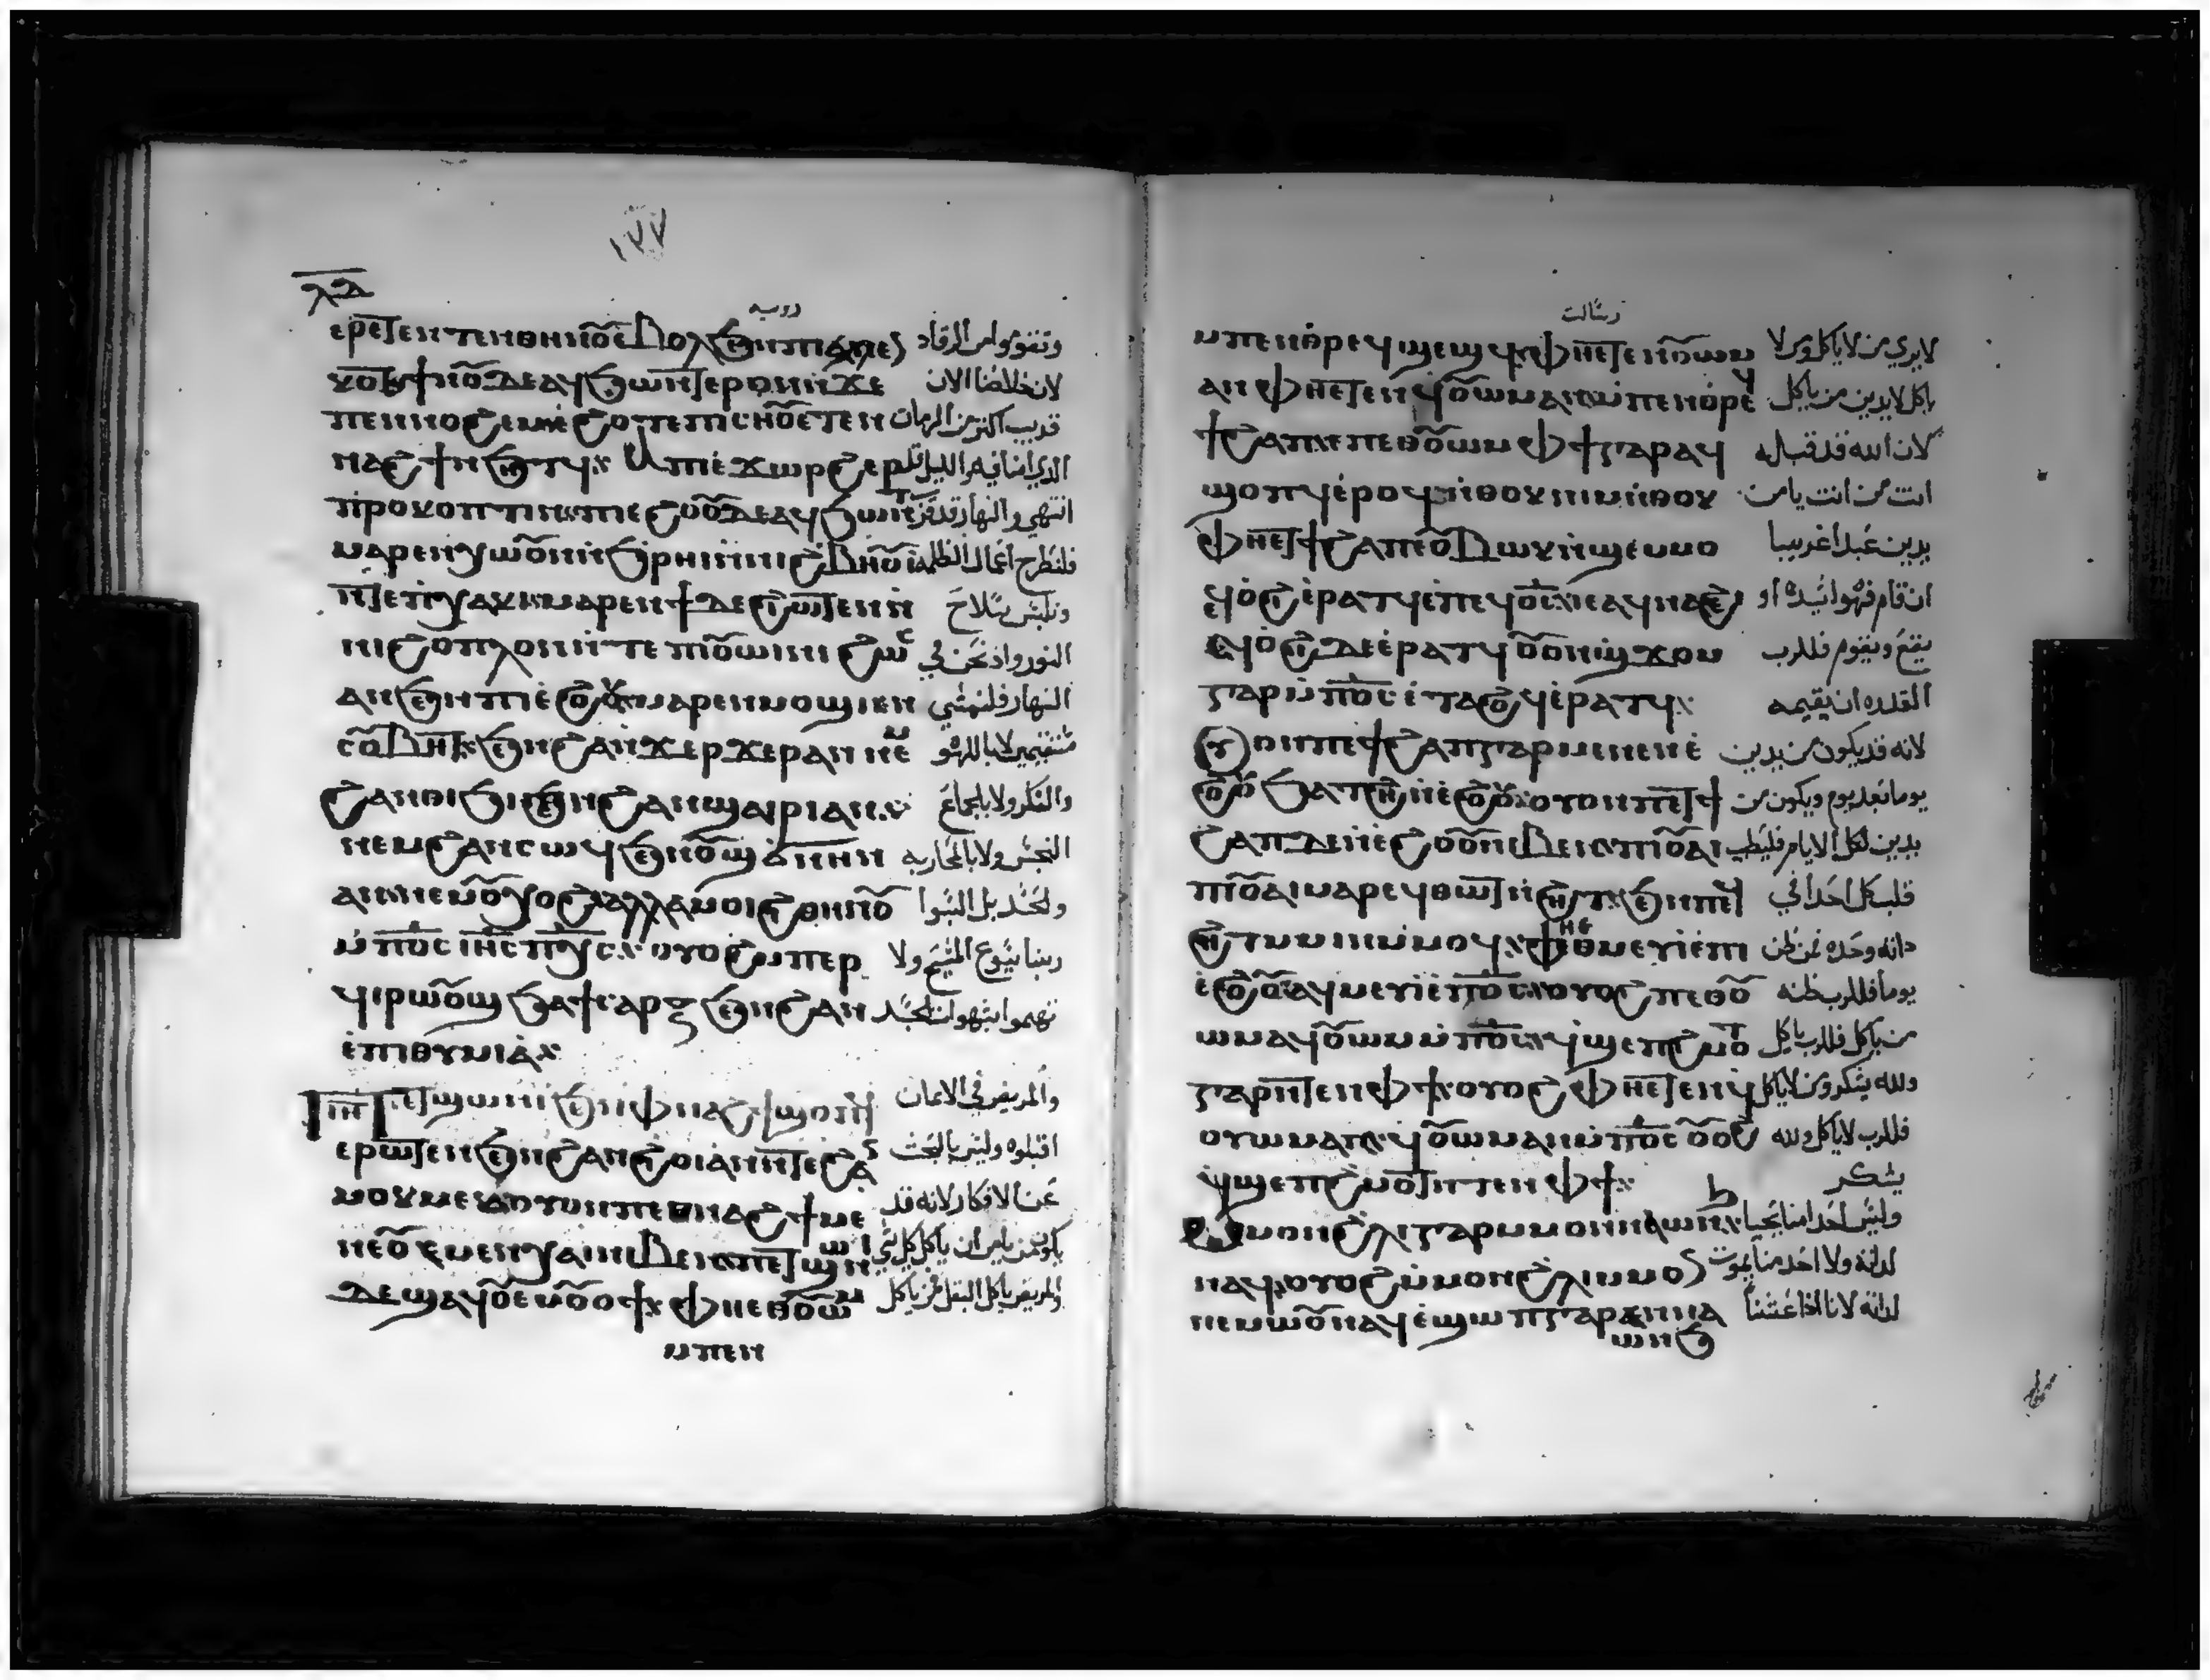 ١٧٧
ⲗⲇ
روميه
ⲉⲣⲉⲧⲉⲛⲧⲉⲛⲑⲏⲛⲟⲩ ⲉⲃⲟⲗϧⲉⲛ وتقوموا من الرقاد
ϯⲛⲟⲩ ⲇⲉ ⲁϥϧⲱⲛⲧ ⲉⲣⲟⲛ ⲛϫⲉ لان خلاصنا الان
ⲡⲉⲛⲛⲟϩⲉⲙ ⲉϩⲟⲧⲉ ⲡⲓⲥⲏⲟⲩ ⲉⲧⲉⲛ قريب اكثر من الزمان
ⲛⲁϩϯ ⲛϧⲏⲧϥ ⲁⲡⲓⲉϫⲱⲣϩ ⲉⲣ الذي امنا فيه والليل قد
ⲡⲣⲟⲕⲟⲡⲧⲓⲛ ⲡⲓⲉϩⲟⲟⲩ ⲇⲉ ⲁϥϧⲱⲛⲧ انتهي والنهار قد قرب
ⲙⲁⲣⲉⲛⲭⲱ ⲟⲩⲛ ⲛϧⲣⲏⲓ ⲛⲛⲓϩⲃⲏⲟⲩⲓ فلنطرح اعمال الظلمة
ⲛⲧⲉ ⲡⲭⲁⲕⲓ ⲙⲁⲣⲉⲛϯ ⲇⲉ ϩⲓⲱⲧⲉⲛ ⲛ ونلبس سلاح
ⲛⲓϩⲟⲡⲗⲟⲛ ⲛⲧⲉ ⲡⲟⲩⲱⲓⲛⲓ ϩⲱⲥ النور واذ نحن في
ⲁⲛϧⲉⲛ ⲡⲓⲉϩⲟⲟⲩ ⲙⲁⲣⲉⲛⲙⲟϣⲓ ϧⲉⲛ النهار فلنمشي
ϩⲁⲛⲑⲓϧⲓ ϧⲉⲛ ϩⲁⲛϣⲁⲓⲣⲓ ⲁⲛ والسكر ولا بالمجامع
ⲛⲉⲙ ϩⲁⲛⲥⲱϥ ϧⲉⲛ ⲟⲩϣϭⲛⲏⲛ النجس ولا بالمحاربه
ⲁⲛ ⲛⲉⲙ ⲟⲩⲭⲟϩ ⲁⲗⲗⲁ ⲙⲟⲓ ϩⲓⲑⲏⲛⲟⲩ والحسد بل البسوا
ⲙⲡⲟⲥ ⲓⲏⲥ ⲡⲭⲥ ⲟⲩⲟϩ ⲙⲡⲉⲣ ربنا يسوع المسيح ولا
ϥⲓⲣⲱⲟⲩϣ ϧⲁ ϯⲥⲁⲣⲝ ϧⲉⲛ ϩⲁⲛ تهموا بشهوات الجسد
ⲉⲡⲓⲑⲩⲙⲓⲁ
ⲡⲏ ⲉⲧϣⲱⲛⲓ ϧⲉⲛ ⲫⲛⲁϩϯ ϣⲟⲡϥ والمريض في الايمان
ⲉⲣⲱⲧⲉⲛ ϧⲉⲛ ϩⲁⲛϩⲟⲓ ⲁⲛ ⲛⲧⲉ ϩⲁⲛ اقبلوه وليس بالبحث
ⲙⲟⲕⲙⲉⲕ ⲟⲩⲟⲛ ⲡⲉⲑⲛⲁϩϯ ⲙⲉ عن الافكار لانه قد
ⲛⲉⲟⲩⲉⲙ ⲉⲛⲭⲁⲓ ⲛⲓⲃⲉⲛ ⲡⲉⲧϣⲱⲛⲓ يكون من يامن ان ياكل كل شي
ⲇⲉ ϣⲁϥⲟⲩⲉⲙ ⲟⲩⲟϯ ⲫⲏ ⲉⲑⲟⲩⲱⲙ والمريض ياكل البقل فمن ياكل
ⲙⲡⲉⲛ
رسالت
ⲙⲡⲉⲛⲑⲣⲉϥϣⲉϣϥ ⲫⲏ ⲉⲧⲉⲛϥⲟⲩⲱⲙ لا يزري من لا ياكل ومن لا
ⲁⲛ ⲫⲏ ⲉⲧⲉⲛϥⲟⲩⲱⲙ ⲁⲛ ⲙⲡⲉⲛⲑⲣⲉϥ ياكل لا يدين من ياكل
ϯϩⲁⲡ ⲉⲡⲉⲑⲟⲩⲱⲙ ⲫϯ ⲅⲁⲣ ⲁϥ لان الله قد قبله
ϣⲟⲡϥ ⲉⲣⲟϥ ⲛⲑⲟⲕ ⲛⲓⲙ ⲛⲑⲟⲕ انت من انت يا من
ⲫⲏ ⲉⲧϯϩⲁⲡ ⲉⲟⲩⲃⲱⲕ ⲛϣⲉⲙⲙⲟ يدين عبدا غريبا
ⲉϥⲟϩⲓ ⲉⲣⲁⲧϥ ⲉⲡⲉϥⲟⲥ ⲓⲉ ⲁϥⲛⲁϩⲉⲓ ان قام فهو لسيده او
ⲉϥⲟϩⲓ ⲇⲉ ⲉⲣⲁⲧϥ ⲟⲩⲟⲛϣϫⲟⲙ يقع ويقوم فللرب
ⲅⲁⲣ ⲙⲡⲟⲥ ⲉⲧⲁϩⲟϥ ⲉⲣⲁⲧϥ القدره ان يقيمه
ⲟⲩⲟⲛ ⲡⲉⲧϯϩⲁⲡ ⲅⲁⲣ ⲛⲉⲛⲉ لانه قد يكون من يدين
ϩⲟⲟⲩ ϧⲁⲧϩⲏ ⲛⲉϩⲟⲟⲩ ⲟⲩⲟⲛ ⲡⲉⲧϯ يوما بعد يوم ويكون من
ϩⲁⲡ ⲇⲉ ⲛⲉϩⲟⲟⲩ ⲛⲓⲃⲉⲛ ⲡⲓⲟⲩⲁⲓ يدين لكل الايام فليطب
ⲡⲓⲟⲩⲁⲓ ⲙⲁⲣⲉϥⲑⲱⲧ ⲛϩⲏⲧ ϧⲉⲛ ⲡⲉϥ قلب كل احد في
ϩⲏⲧ ⲙⲙⲓⲛⲙⲙⲟϥ ⲫⲏ ⲉⲑⲙⲉⲩⲓ ⲉⲡⲓ ذاته وحده فمن ظن
ⲉϩⲟⲟⲩ ⲁϥⲙⲉⲩⲓ ⲉⲡⲟⲥ ⲟⲩⲟϩ ⲡⲉⲑⲟⲩ يوما فللرب ظنه
ⲱⲙ ⲁϥⲟⲩⲱⲙ ⲙⲡⲟⲥ ϥϣⲉⲡϩⲙⲟⲧ من ياكل فللرب ياكل
ⲅⲁⲣ ⲛⲧⲉⲛ ⲫϯ ⲟⲩⲟϩ ⲫⲏ ⲉⲧⲉⲛϥ ولله يشكر ومن لا ياكل
ⲟⲩⲱⲙ ⲁⲛ ϥⲟⲩⲱⲙ ⲁⲛ ⲙⲡⲟⲥ ⲟⲩⲟϩ فللرب لا ياكل ولله
ϥϣⲉⲡϩⲙⲟⲧ ⲛⲧⲉⲛ ⲫϯ يشكر
ⲙⲙⲟⲛ ϩⲗⲓ ⲅⲁⲣ ⲙⲙⲟⲛ ⲛⲁⲱⲛϧ وليس احد منا يحيا
ⲛⲁϥ ⲟⲩⲟϩ ⲙⲙⲟⲛ ϩⲗⲓ ⲙⲙⲟⲛ لذاته ولا احد منا يموت
ⲛⲉⲙⲱⲟⲩ ⲛⲁϥ ⲉϣⲱⲡ ⲅⲁⲣ ⲁⲛⲛⲁ لذاته لانا اذا عشنا
ⲱⲛϧ